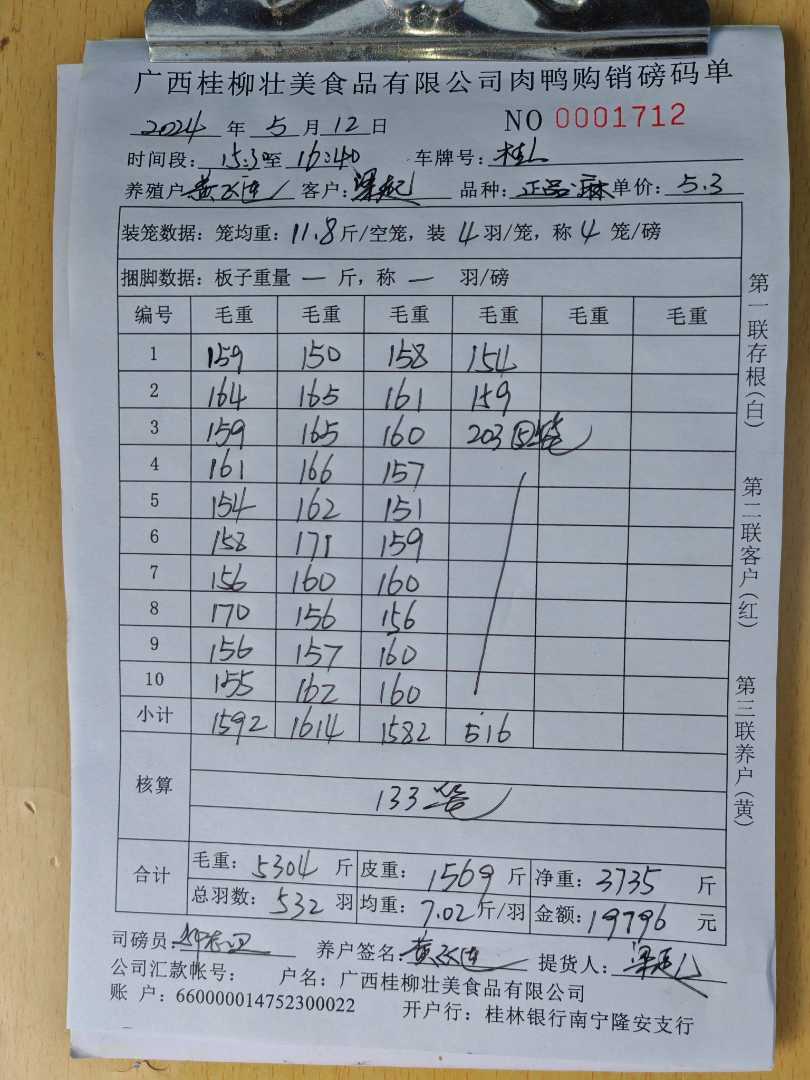 广西桂柳壮美食品有限公司肉鸭购销磅码单
2024 年 5 月 12 日 NO 0001712
时间段: 15:30至 16:40 车牌号: 桂
养殖户 黄 客户: 梁起 品种: 正品·麻 单价: 5.3
装笼数据: 笼均重: 11.8斤/空笼, 装 4 羽/笼, 称 4 笼/磅
捆脚数据: 板子重量 一 斤, 称 一 羽/磅
编号 毛重 毛重 毛重 毛重 毛重 毛重
1 159 150 158 154
2 164 165 161 159
3 159 165 160 203 ⑤笼
4 161 166 157
5 154 162 151
6 158 171 159
7 156 160 160
8 170 156 156
9 156 157 160
10 155 162 160
小计 1592 1614 1582 516
核算 133笼
合计 毛重: 5304 斤 皮重: 1569 斤 净重: 3735 斤
总羽数: 532 羽 均重: 7.02斤/羽 金额: 19796 元
司磅员: 养户签名: 黄 提货人: 梁起
公司汇款帐号: 户名: 广西桂柳壮美食品有限公司
账 户: 660000014752300022 开户行: 桂林银行南宁隆安支行
第一联存根(白)
第二联客户(红)
第三联养户(黄)